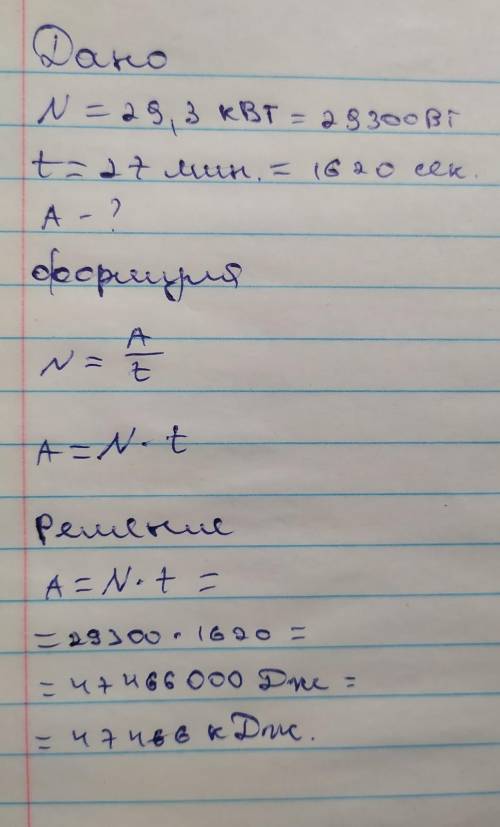 Дано
N = 29,3 кВт = 29300Вт
t = 27 мин. = 1620 сек.
A - ?
формула
N = A/t
A = N · t
Решение
A = N · t =
= 29300 · 1620 =
= 47466000 Дж =
= 47466 кДж.